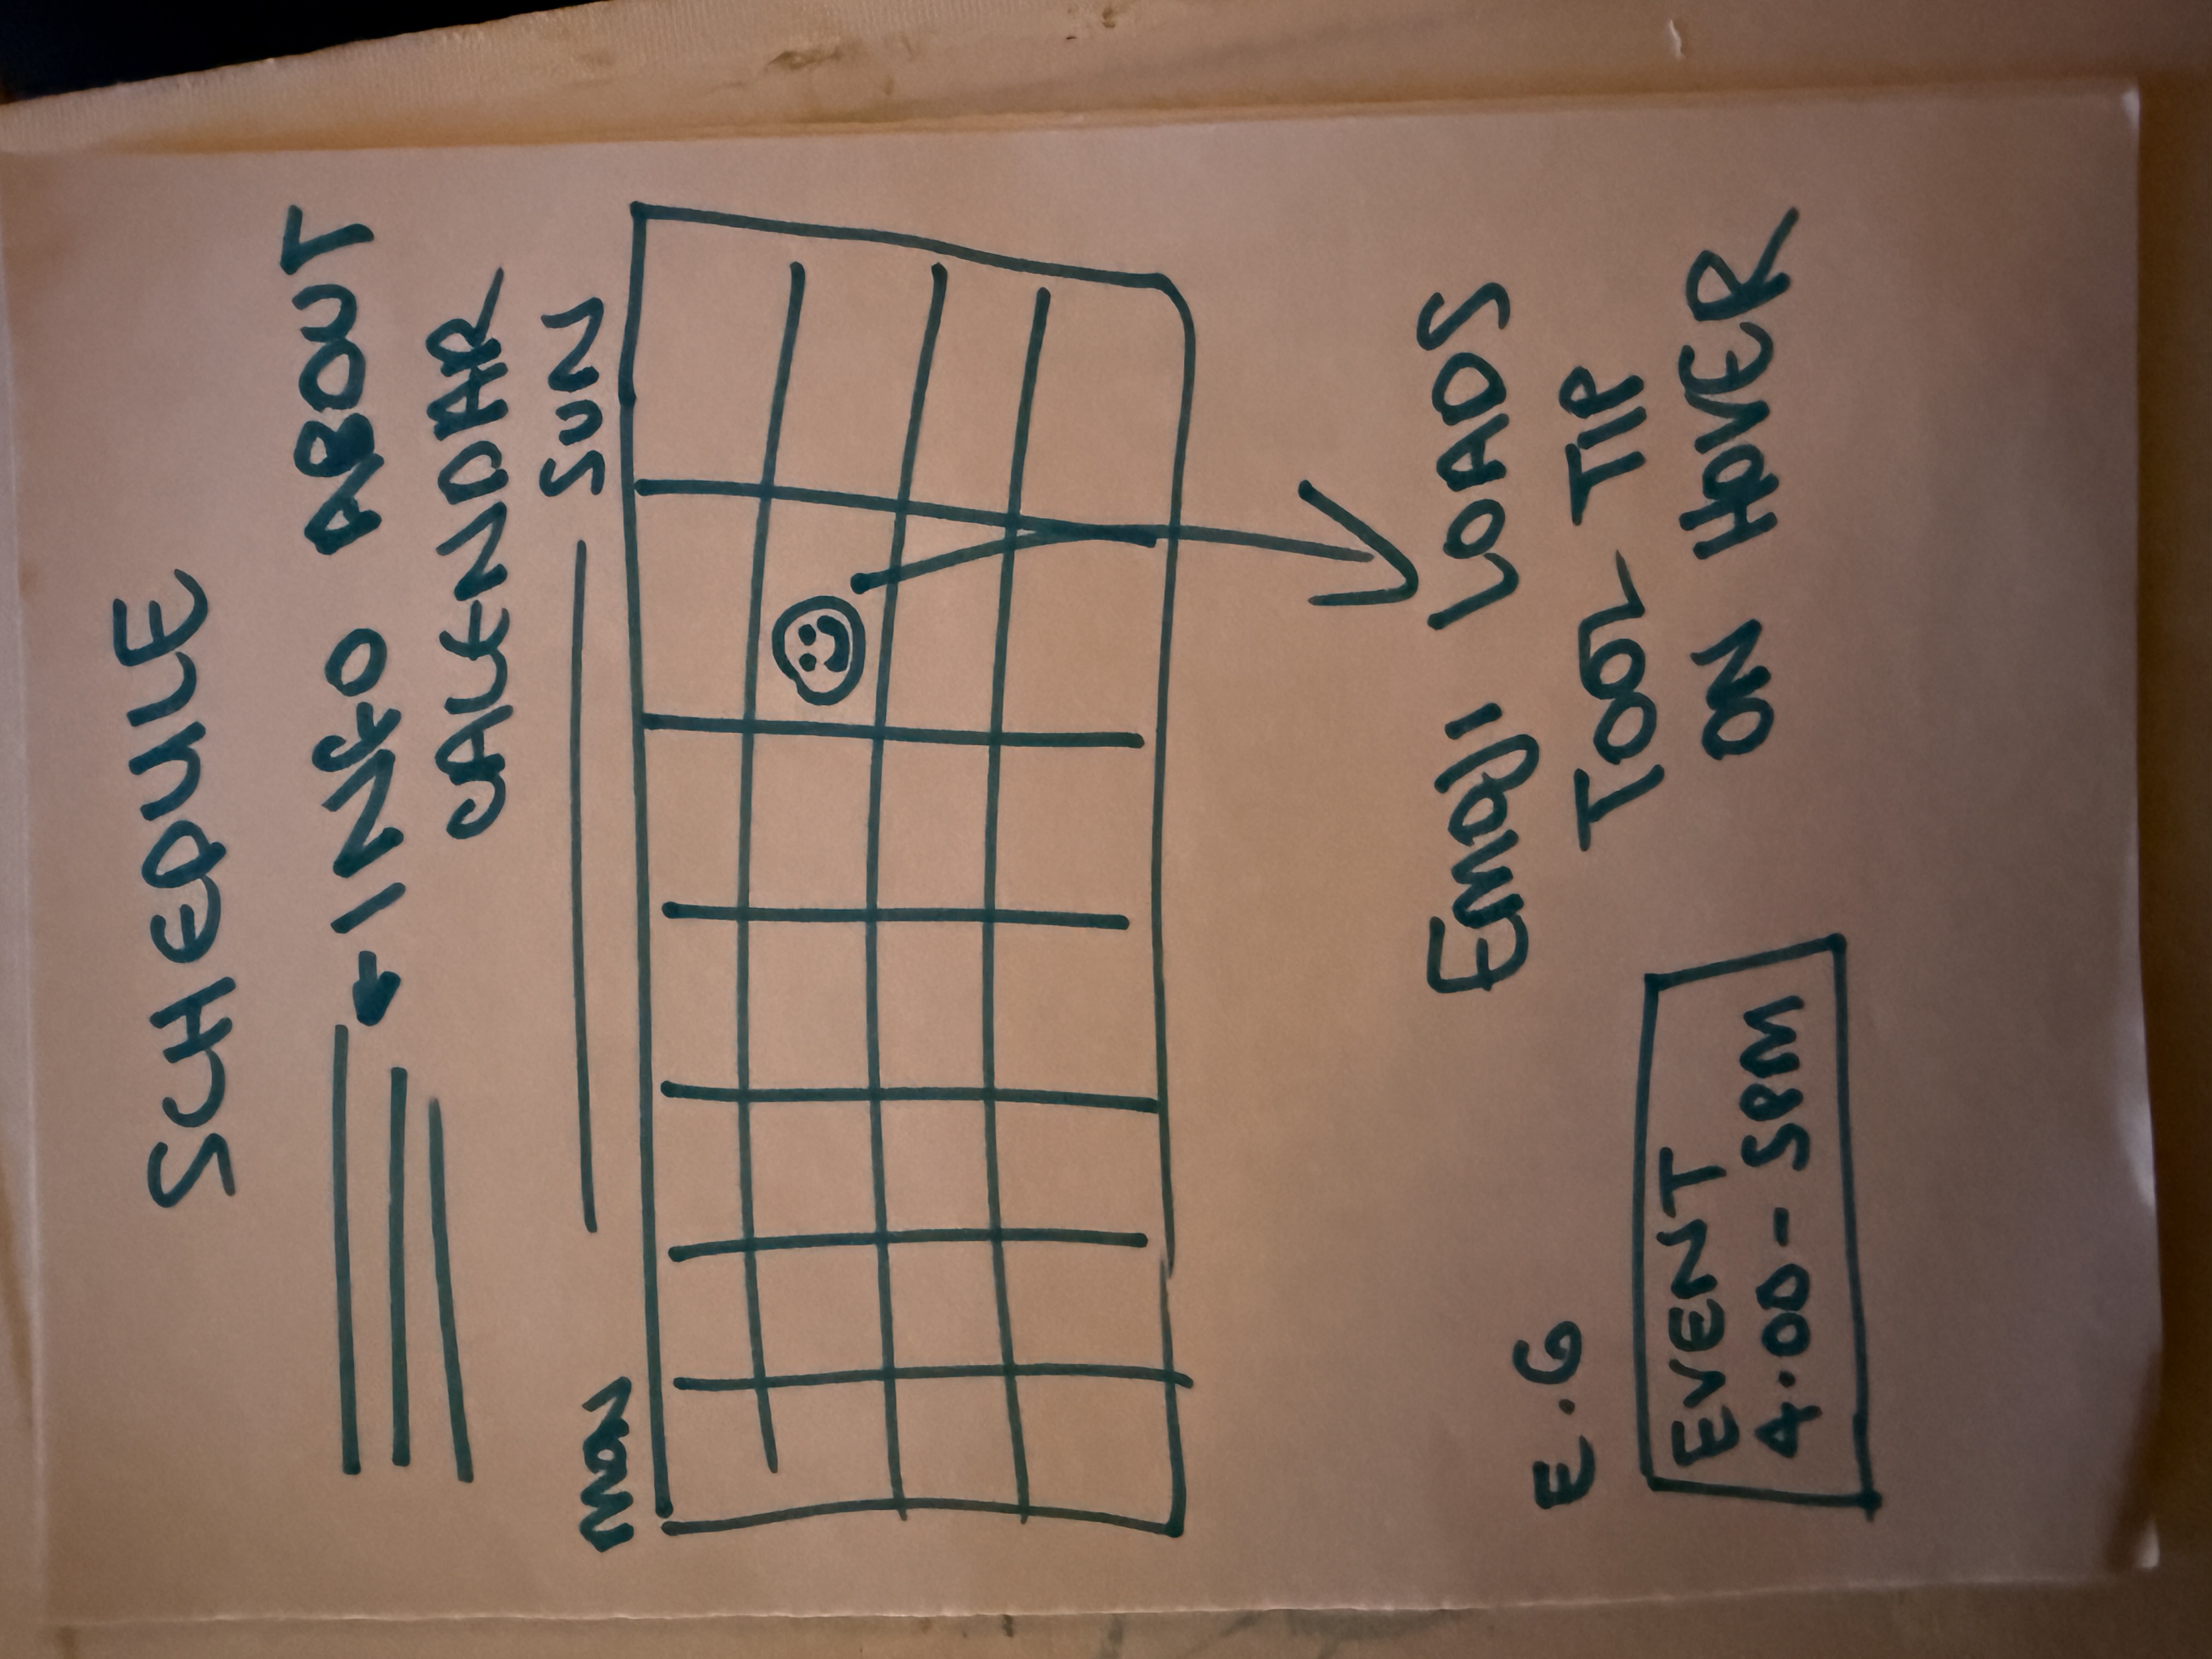 SCHEDULE
INFO ABOUT
CALENDAR
MON SUN
EMOJI LOADS
TOOL TIP
ON HOVER
E.G
EVENT
4.00 - 5PM